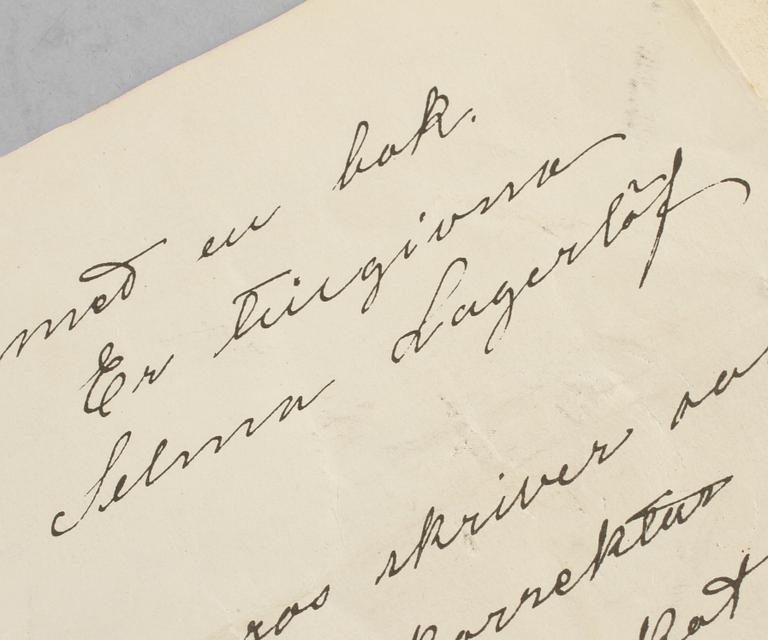 med en bok.
Er tillgivna
Selma Lagerlöf
skriver
korrektur